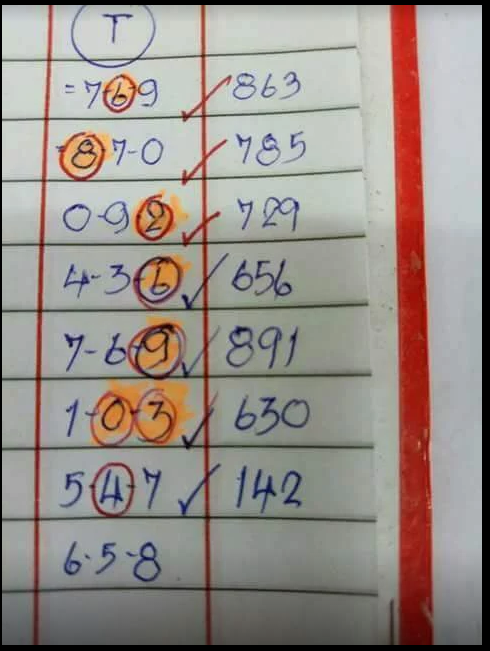 T
=7-6-9 863
=8-7-0 785
0-9-2 729
4-3-6 656
7-6-9 891
1-0-3 630
5-4-7 142
6-5-8